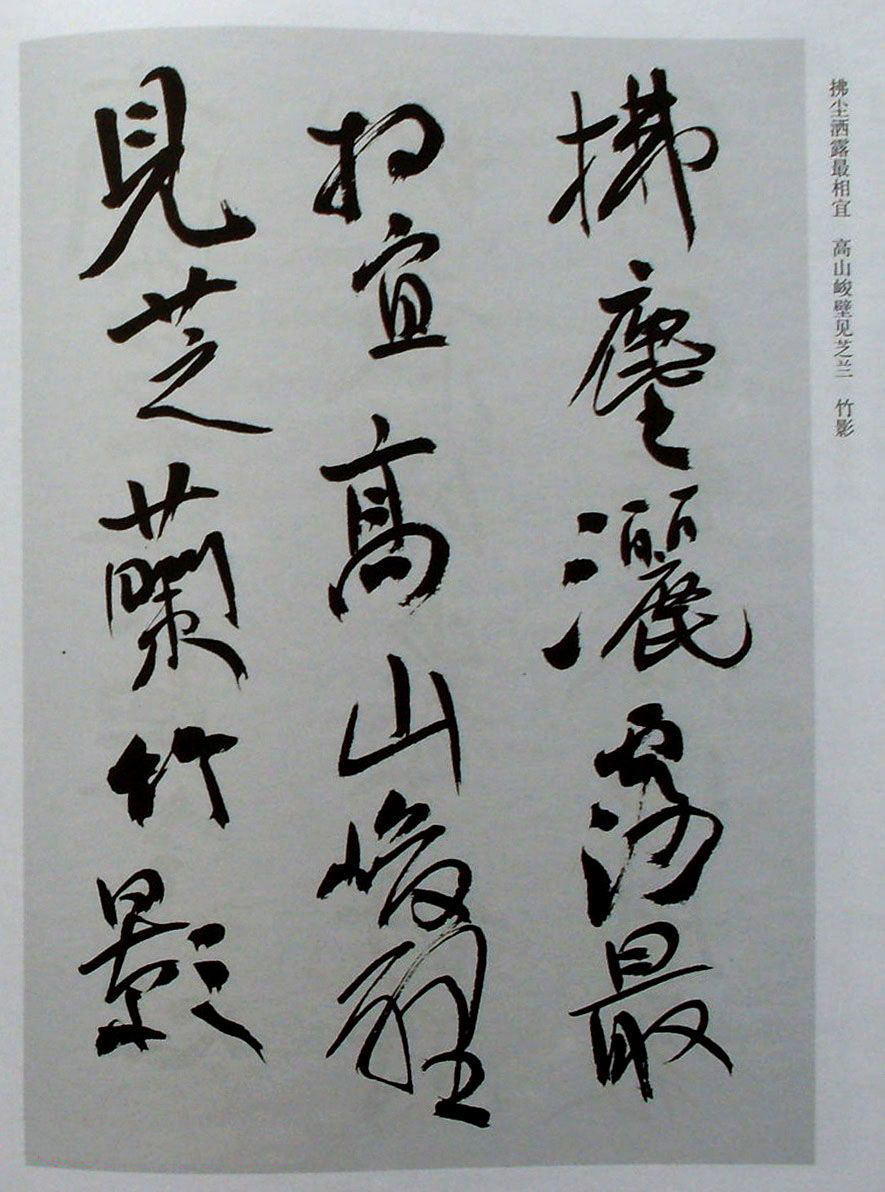 拂尘洒露最相宜　高山峻壁见芝兰　竹影
拂塵灑露最
相宜高山峻壁
見芝蘭竹影